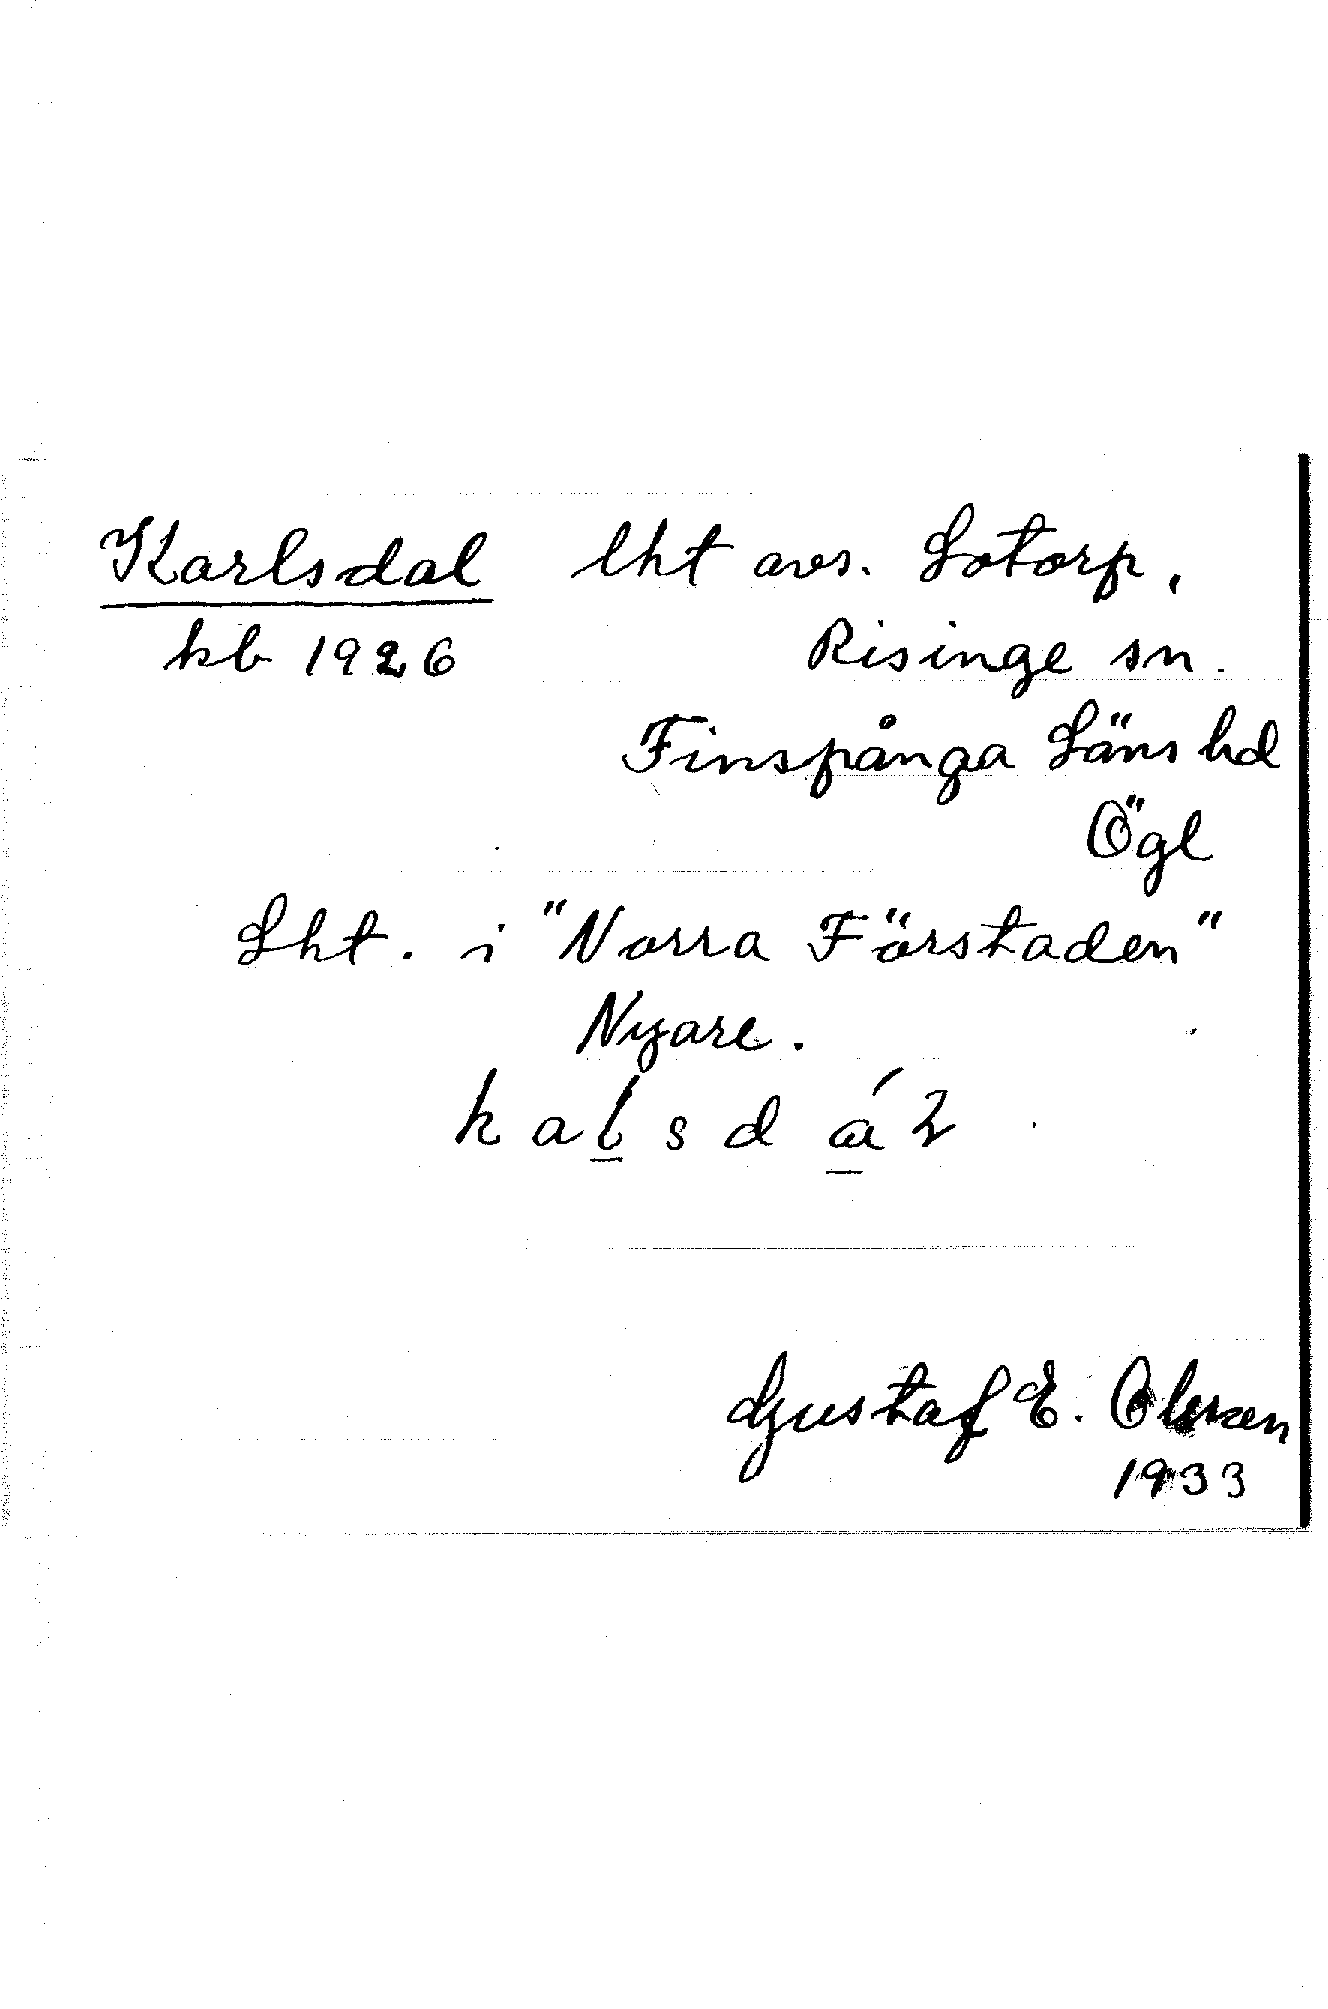 Karlsdal lht avs. Lotorp,
kb 1926 Risinge sn.
Finspånga Läns hd
Ögl
Lht. i "Norra Förstaden"
Nyare.
k a l s d á
Gustaf E. Olsson
1933